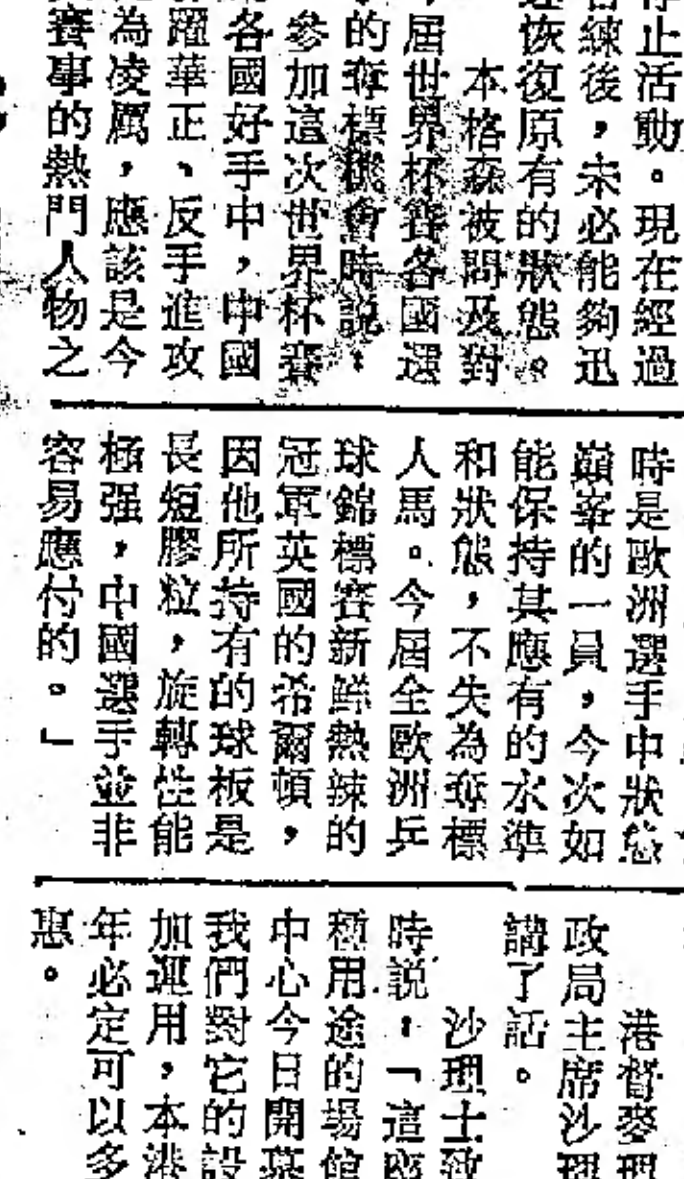 停止活動。現在經過
習練後，未必能夠迅
速恢復原有的狀態。
本格森被問及對
屆世界杯賽各國選
的奪標機會時說：
參加這次世界杯賽
各國好手中，中國
躍華正、反手進攻
為凌厲，應該是今
賽事的熱門人物之
時是歐洲選手中狀態
巔峯的一員，今次如
能保持其應有的水準
和狀態，不失為奪標
人馬。今屆全歐洲乒
球錦標賽新鮮熱辣的
冠軍英國的希爾頓，
因他所持有的球板是
長短膠粒，旋轉性能
極强，中國選手並非
容易應付的。」
港督麥理
政局主席沙理
講了話。
沙理士致
時説，「這座
種用途的場館
中心今日開幕
我們對它的設
加運用，本港
年必定可以多
惠。